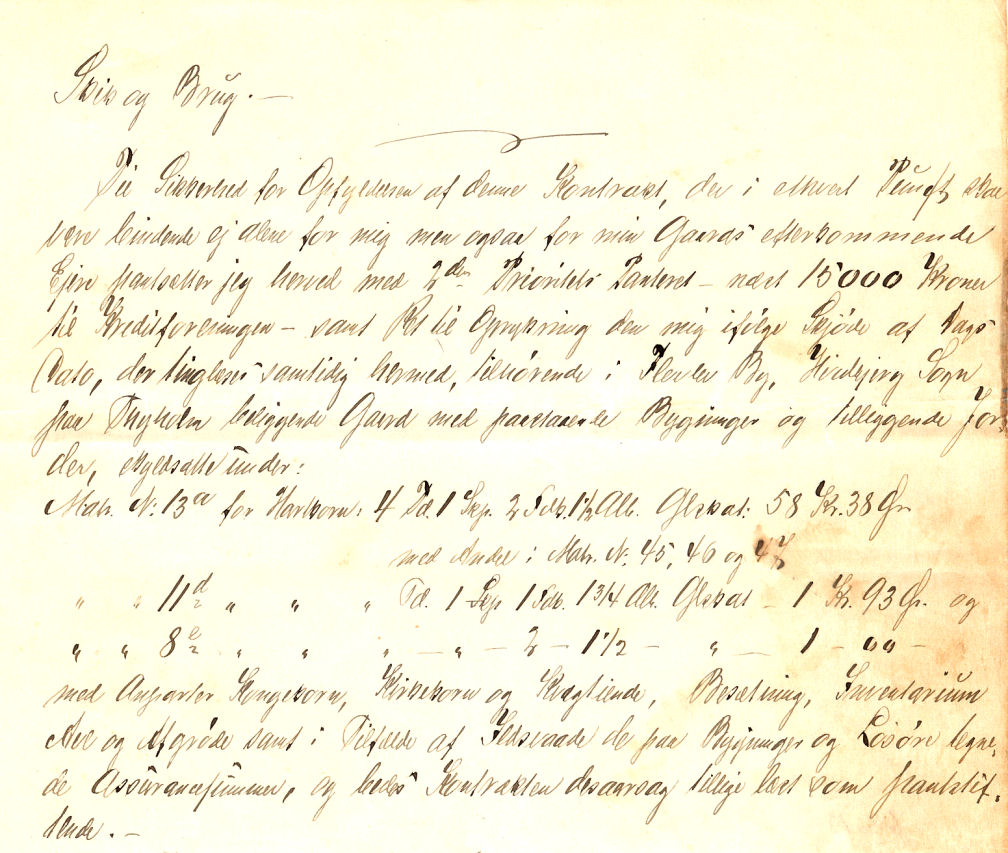 Skik og Brug. —
Til Sikkerhed for Opfyldelsen af denne Kontrakt, der i ethvert Punkt skal
være bindende ej alene for mig men ogsaa for min Gaards efterkommende
Ejere pantsætter jeg herved med 2den Prioritets Panteret – næst 15000 Kroner
til Kreditforeningen – samt Ret til Oprykning den mig ifølge Skjøde af Dags
Dato, der tinglæses samtidig hermed, tilhørende i Flovlev By, Hvidbjerg Sogn
paa Thyholm beliggende Gaard med paastaaende Bygninger og tilliggende Jor-
der, skyldsatte under:
Matr. N: 13a for Hartkorn: 4 Td. 1 Skp. 2 Fdk. 1½ Alb. Glskat: 58 Kr. 38 Ør.
med Andel i Matr. N: 45, 46 og 47
" " 11d " " " Td. 1 Skp 1 Fdk. 1 3/4 Alb. Glskat – 1 Kr. 93 Ør. og
" " 8e " " " — " — 2 — 1 1/2 — " — 1 — 00 —
med Anparter Kongekorn, Kirkekorn og Kvægtiende, Besætning, Inventarium
Avl og Afgrøde samt i Tilfælde af Ildsvaade de paa Bygninger og Løsøre tegne-
de Assurancesummer, og bedes Kontrakten desaarsag tillige læst som pantstif-
tende. —